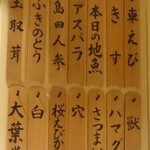 車えび
きす
本日の地魚
アスパラ
島田人参
ふきのとう
玉取茸
獣
ハマグ
さつま
穴
桜えびか
白
大葉